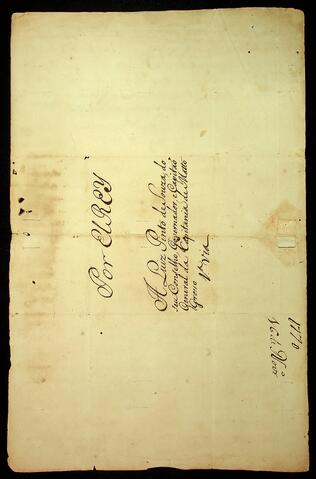 Por ElREY
A Luiz Pinto de Souza, do
seu Conselho, Governador, e Capitaõ
General da Capitania de Matto
Groso 1ª Via
1770